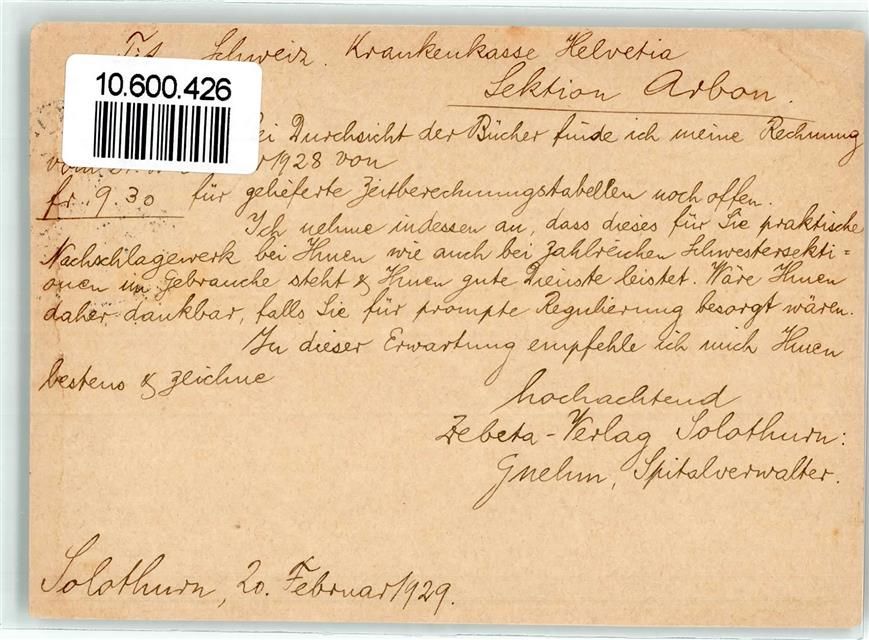 Tit. Schweiz. Krankenkasse Helvetia
Sektion Arbon.
10.600.426
Bei Durchsicht der Bücher finde ich meine Rechnung
vom 1928 von
fr. 9.30 für gelieferte Zeitberechnungstabellen noch offen.
Ich nehme indessen an, dass dieses für Sie praktische
Nachschlagewerk bei Ihnen wie auch bei zahlreichen Schwestersekti=
onen im Gebrauche steht & Ihnen gute Dienste leistet. Wäre Ihnen
daher dankbar, falls Sie für prompte Regulierung besorgt wären.
In dieser Erwartung empfehle ich mich Ihnen
bestens & zeichne
hochachtend
Zebeta-Verlag Solothurn:
Gnehm, Spitalverwalter.
Solothurn, 20. Februar 1929.